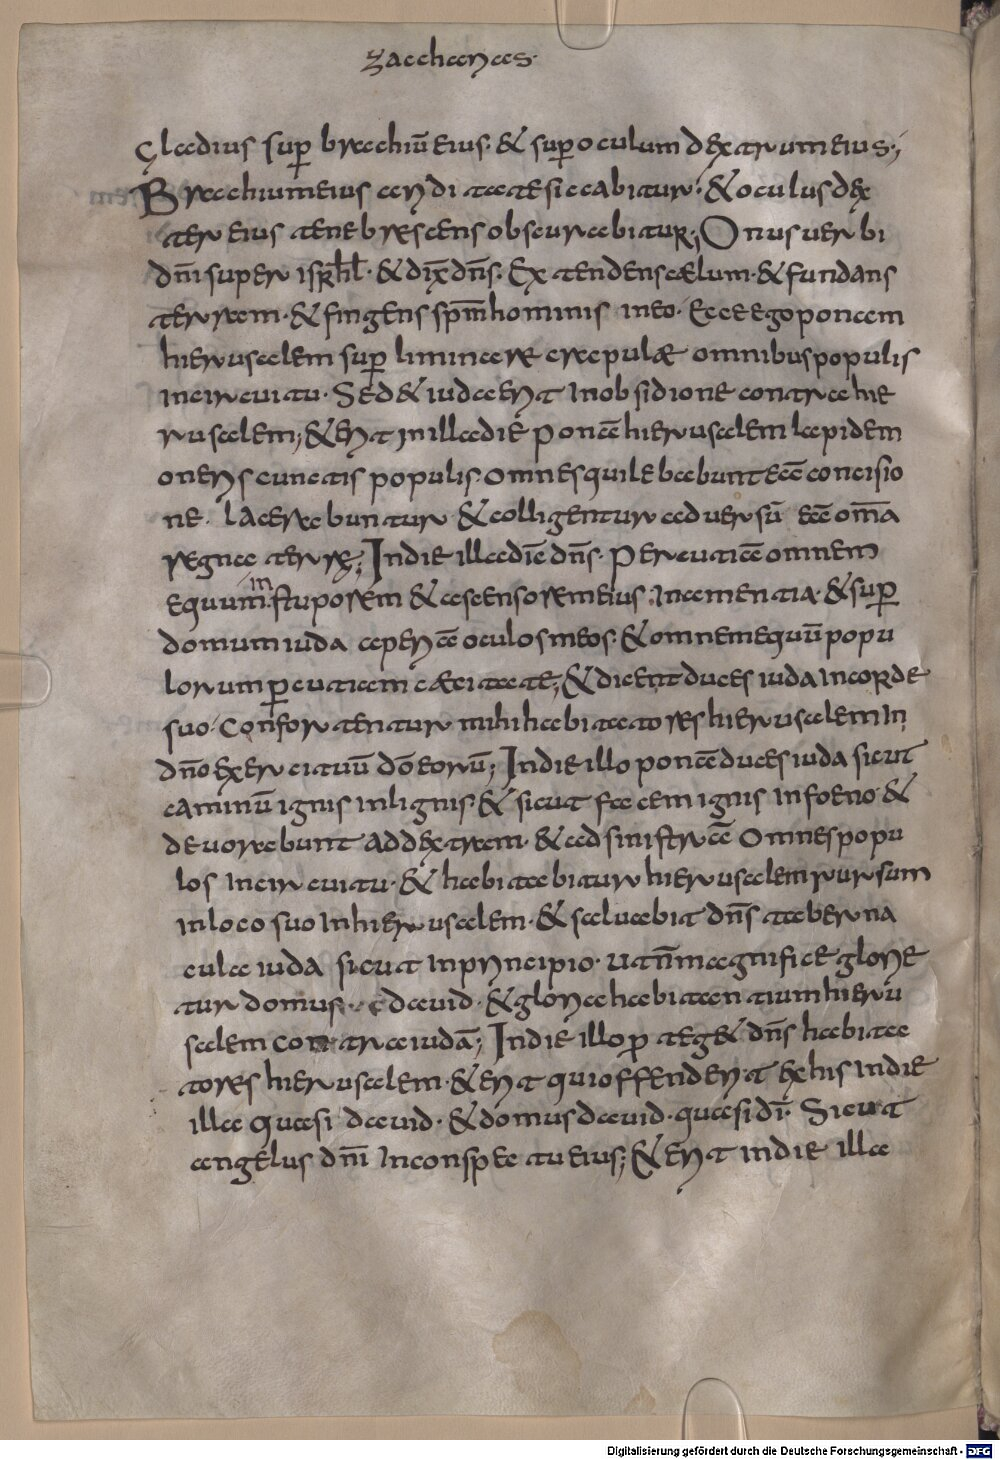 zacharias·
Gladius sup̱ brachiū eius· & sup̱ oculum dextrum eius·;
Brachium eius ariditate siccabitur· & oculus dex
ter eius tenebrescens obscurabitur; Onus uerbi
dn̄i super isrl̄· & dix̄ dn̄s· Extendens cælum· & fundans
terram· & fingens spm̄ hominis in eo· Ecce ego ponam
hierusalem sup̱ liminare crapulæ omnibus populis
in circuitu· Sed & iuda erit in obsidione contra hie
rusalem; & erit in illa die Ponā hierusalem lapidem
oneris cunctis populis· omnes qui lebabunt eā concisio
ne· lacerabuntur & colligentur aduersū eā om̄a
regna terrę; In die illa diē dn̄s· Percutiā omnem
equum in stuporem & ascensorem eius· in amentia· & sup̱
domum iuda aperiā oculos meos· & omnem equū popu
lorum p̱cutiam cæcitate; & dicent duces iuda in corde
suo· Confortentur mihi habitatores hierusalem in
dn̄o exercituū dō eorū; In die illo ponā duces iuda sicut
caminū ignis in lignis· & sicut facem ignis in foeno· &
deuorabunt ad dextram· & ad sinistrā Omnes popu
los in circuitu· & habitabitur hierusalem rursum
in loco suo in hierusalem· & saluabit dn̄s taberna
cula iuda sicut in principio· ut n̄ magnifice glorie
tur domus dauid· & gloria habitantium hieru
salem contra iudā; In die illo p̱teg& dn̄s habita
tores hierusalem· & erit qui offenderit ex his in die
illa quasi dauid· & domus dauid· quasi dī· Sicut
angelus dn̄i in conspectu eius; & erit in die illa
Digitalisierung gefördert durch die Deutsche Forschungsgemeinschaft - DFG